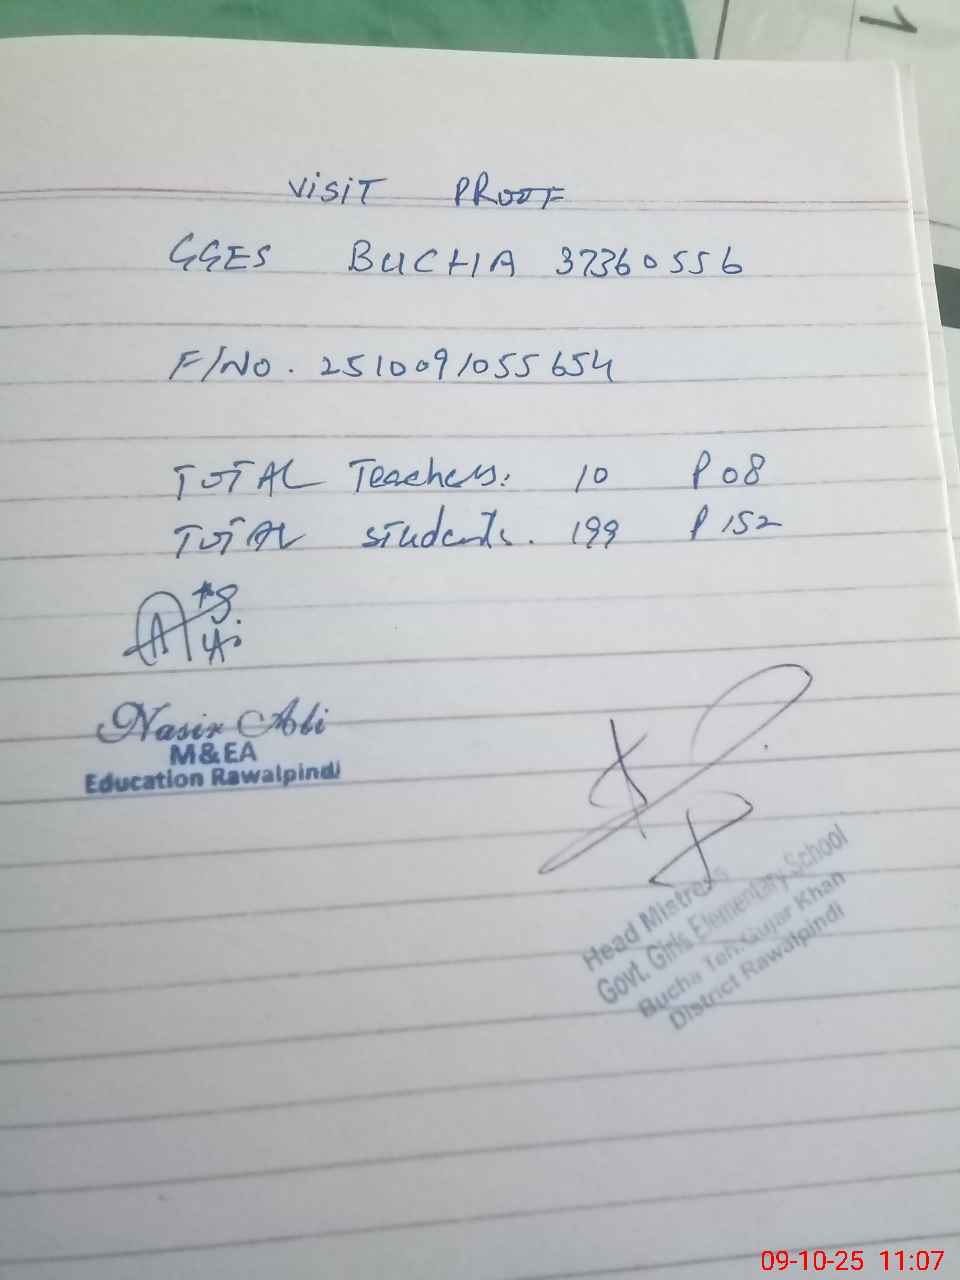 VISIT PROOF
GGES BUCHA 37360556
F/NO. 2510091055654
TOTAL Teachers: 10 P 08
TOTAL students. 199 P 152
Nasir Ali
M&EA
Education Rawalpindi
Head Mistress
Govt. Girls Elementary School
Bucha Teh. Gujar Khan
District Rawalpindi
09-10-25 11:07